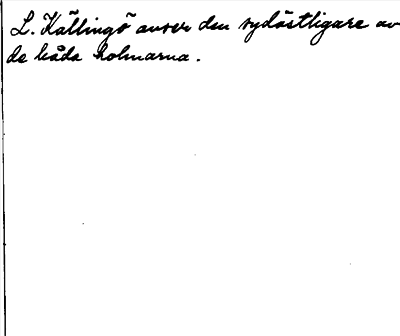 L. Källingö avser den sydöstligare av
de båda holmarna.